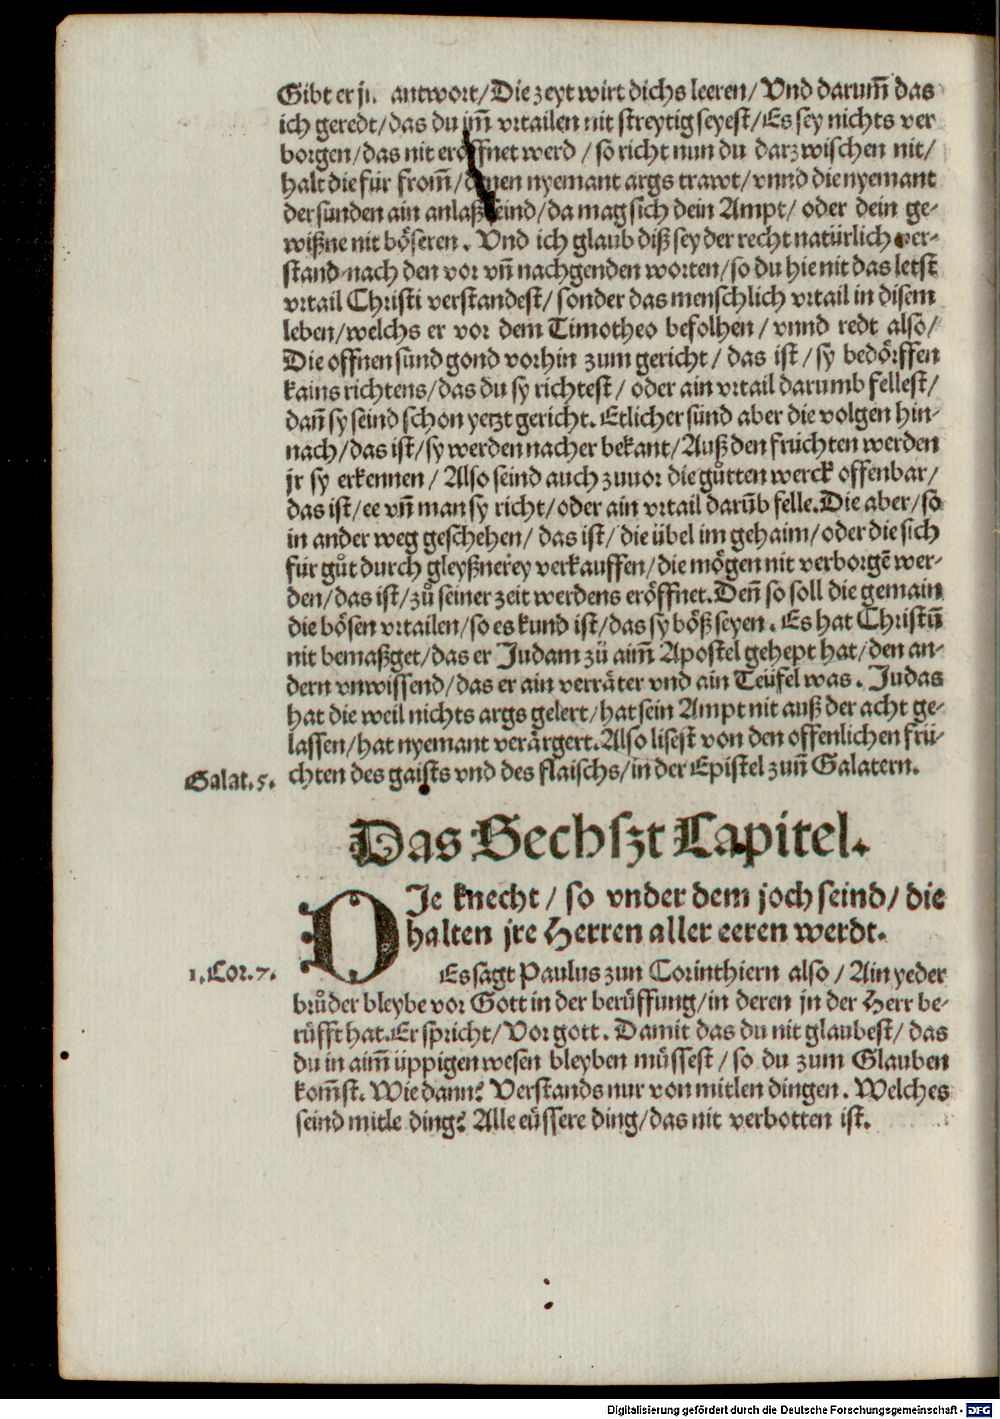 Gibt er antwort/Die zeyt wirt dichs leeren/Vnd darum̃ das
ich geredt/das du im̃ vrtailen nit streytig seyest/Es sey nichts ver
borgen/das nit eröffnet werd/so richt nun du darzwischen nit/
halt die für from̃/denen nyemant args trawt/vnnd die nyemant
der sunden ain anlaß seind/da mag sich dein Ampt/oder dein ge-
wißne nit böseren. Vnd ich glaub diß sey der recht natürlich ver-
stand nach den vor vñ nachgenden worten/so du hie nit das letst
vrtail Christi verstandest/sonder das menschlich vrtail in disem
leben/welchs er vor dem Timotheo befolhen/vnnd redt also/
Die offnen sünd gond vorhin zum gericht/das ist/sy bedörffen
kains richtens/das du sy richtest/oder ain vrtail darumb fellest/
dañ sy seind schon yetzt gericht. Etlicher sünd aber die volgen hin-
nach/das ist/sy werden nacher bekant/Auß den früchten werden
jr sy erkennen/Also seind auch zuuor die gůtten werck offenbar/
das ist/ee vñ man sy richt/oder ain vrtail darũb felle. Die aber/so
in ander weg geschehen/das ist/die übel im gehaim/oder die sich
für gůt durch gleyßnerey verkauffen/die mögen nit verborgẽ wer-
den/das ist/zů seiner zeit werdens eröffnet. Deñ so soll die gemain
die bösen vrtailen/so es kund ist/das sy böß seyen. Es hat Christũ
nit bemaßget/das er Judam zü aim̃ Apostel gehept hat/den an-
dern vnwissend/das er ain verräter vnd ain Teüfel was. Judas
hat die weil nichts args gelert/hat sein Ampt nit auß der acht ge-
lassen/hat nyemant verärgert. Also lisest von den offenlichen frü-
Galat. 5. chten des gaists vnd des flaischs/in der Epistel zun̄ Galatern.
Das Sechszt Capitel.
DIe knecht/so vnder dem joch seind/die
halten jre Herren aller eeren werdt.
1. Cor. 7. Es sagt Paulus zun Corinthiern also/Ain yeder
brůder bleybe vor Gott in der berüffung/in deren jn der Herr be-
rüfft hat. Er spricht/Vor gott. Damit das du nit glaubest/das
du in aim̃ üppigen wesen bleyben müssest/so du zum Glauben
kom̃st. Wie dann? Verstands nur von mitlen dingen. Welches
seind mitle ding? Alle eüssere ding/das nit verbotten ist.
Digitalisierung gefördert durch die Deutsche Forschungsgemeinschaft - DFG